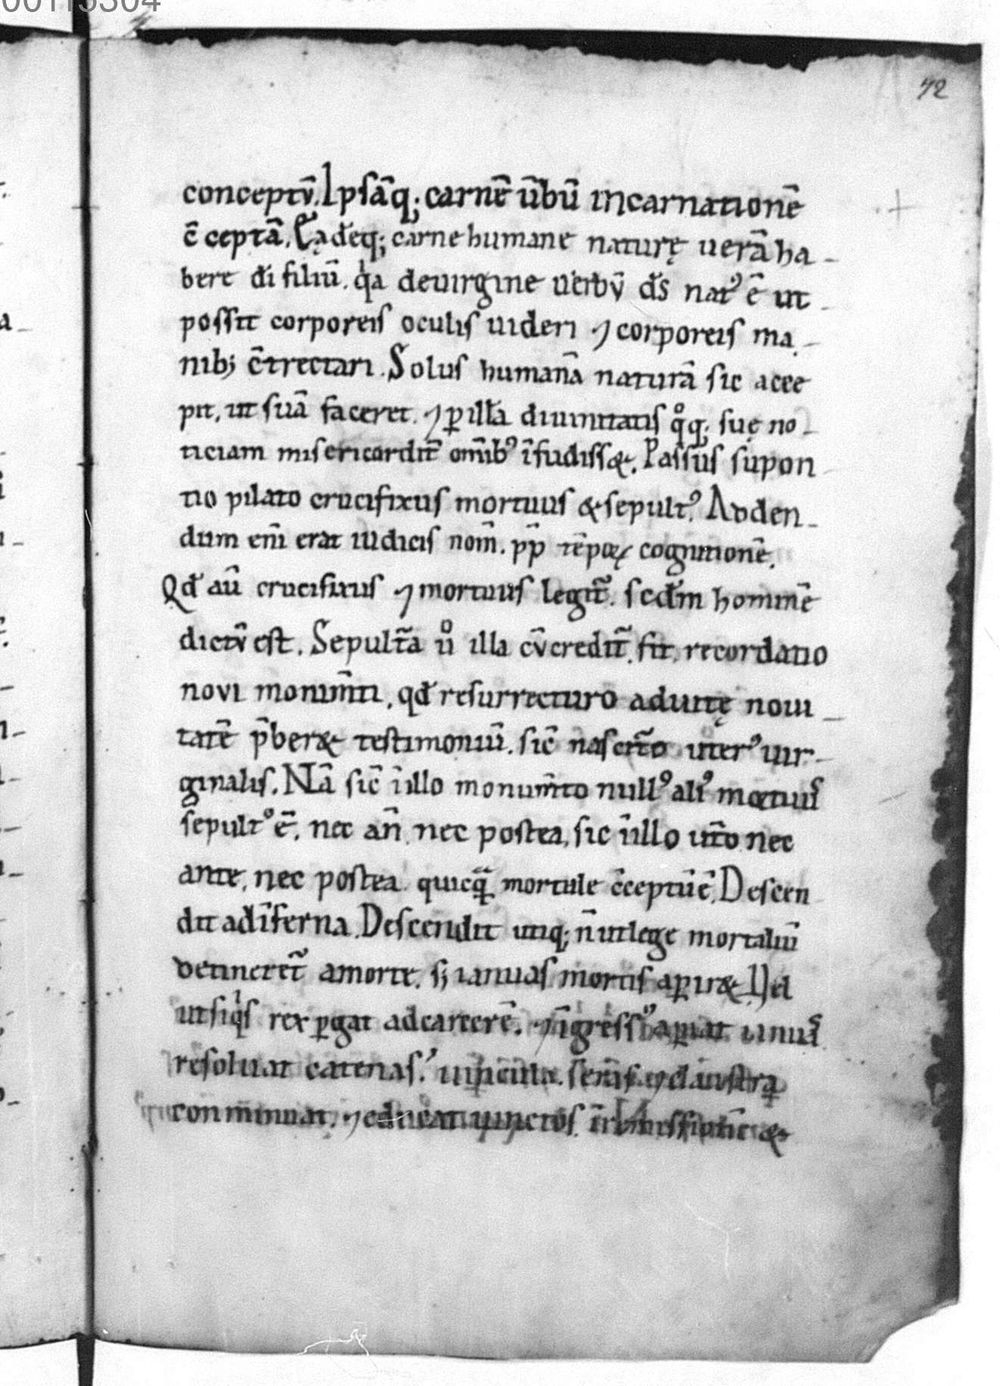 00113304
72
conceptū. Ipsāq; carnē ūbū incarnationē
c̄ceptā. Eądeq; carne humane naturę uerā ha-
bere dī filiū. qͥa de uirgine uerbū dſ̄ natꝰ ē ut
poſſit corporeiſ oculiſ uideri ⁊ corporeiſ ma-
nibꝫ c̄trectari. Soluſ humanā naturā ſic acce
pit, ut ſuā faceret. ⁊ ꝑ illā diuinitatiſ qͦq; ſuę no-
ticiam miſericordit̄ om̄ibꝰ īfudiſſ&. Paſſuſ ſupon
tio pilato crucifixuſ mortuuſ & ſepultꝰ. Auden-
dum eni̅ erat iudiciſ nom̄. ꝓp̄ tēpoꝝ cognitionē.
Qd̄ au̅ crucifixuſ ⁊ mortuuſ legit̄. ſcd̄m hominē
dictū eſt. Sepult̄a uͦ illa cū credit̄ fit, recordatio
novi monim̄ti, qd̄ reſurrecturo ad uitę noui-
tatē p̄ber& teſtimoniū. ſic̄ naſcit̄o uterꝰ uir-
ginaliſ. Nā ſic̄ ī illo monum̄to nullꝰ aliꝰ mortuuſ
ſepultꝰ ē. nec an̄. nec poſtea, ſic ī illo ut̄o nec
ante, nec poſtea quicq̄ mortale c̄ceptū ē. Deſcen
dit ad īferna. Deſcendit utiq; n̄ ut lege mortaliū
detineret̄ a morte. ſꝫ ianuaſ mortiſ aꝑir& Vel
ut ſiqͥſ rex ꝑgat ad carcerē. ⁊ īgreſſꝰ aꝑiat ianuaſ
reſoluat catenaſ.